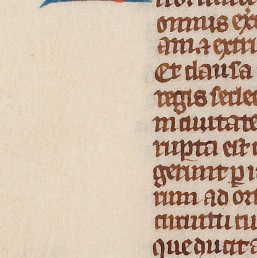 omnis ex
am. et extr
Et clausa
regis sedec
in ciuitate
rupta est c
gerunt p
rum ad or
circuitu
que ducit a